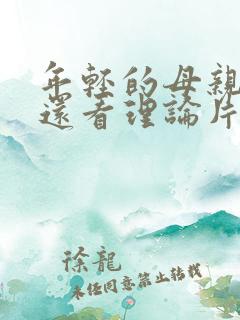 年轻的母親
還看理論片
徐龍
未经同意禁止转载